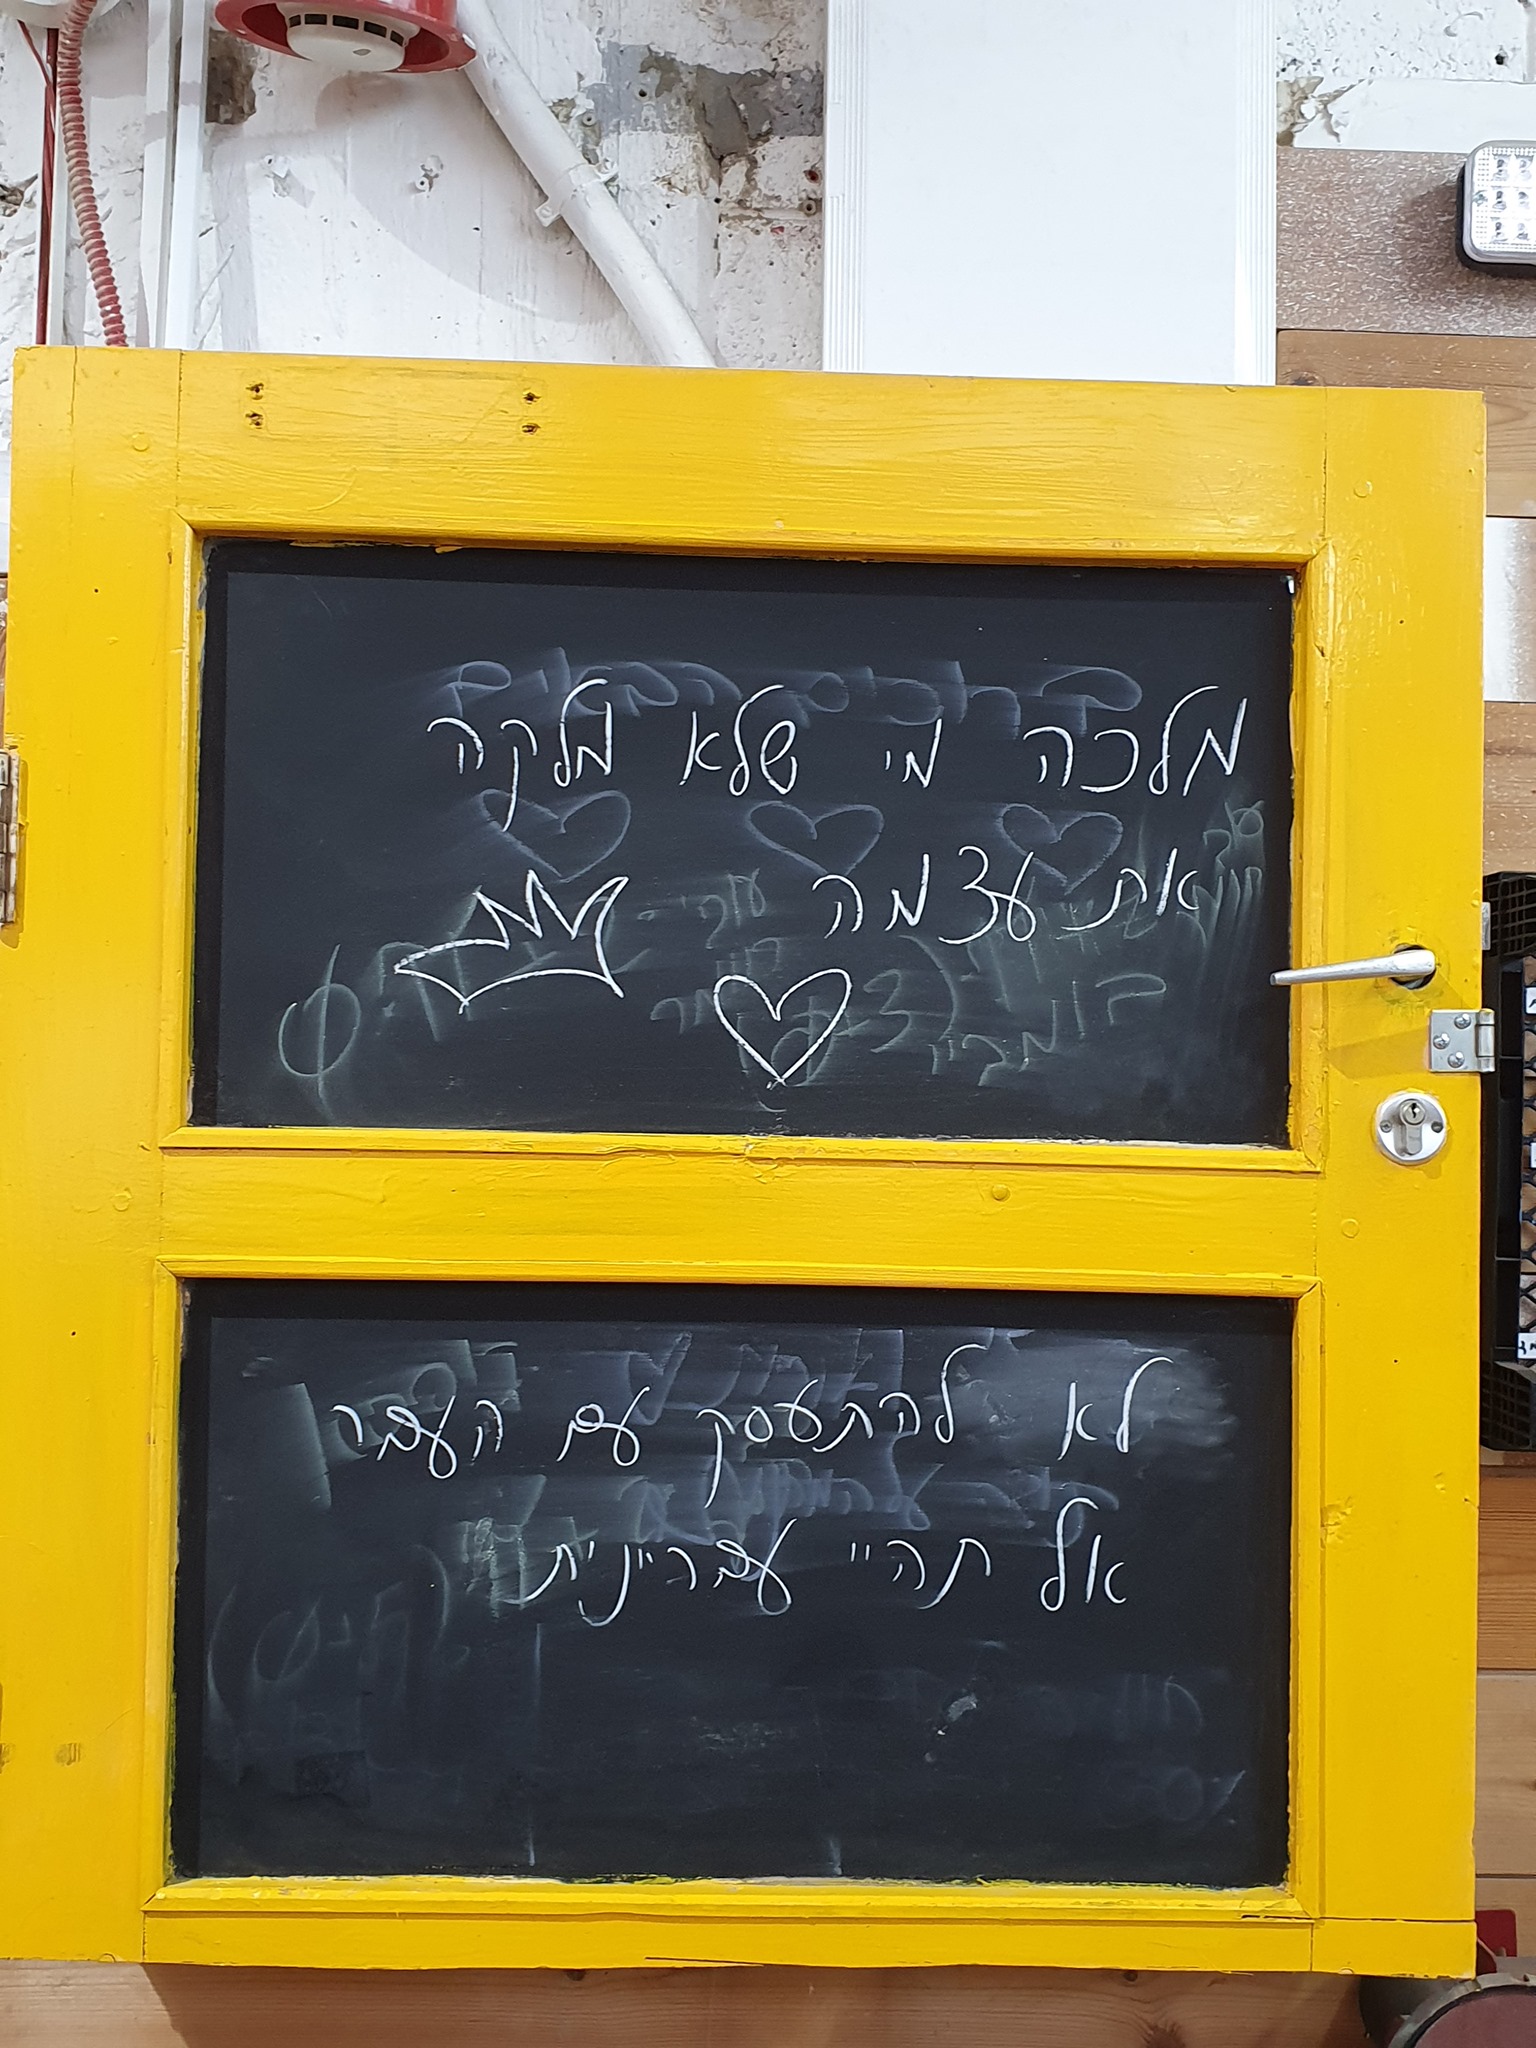 מלכה מי שלא מלקה
את עצמה
לא להתעסק עם העבר
אל תהיי עבריינית